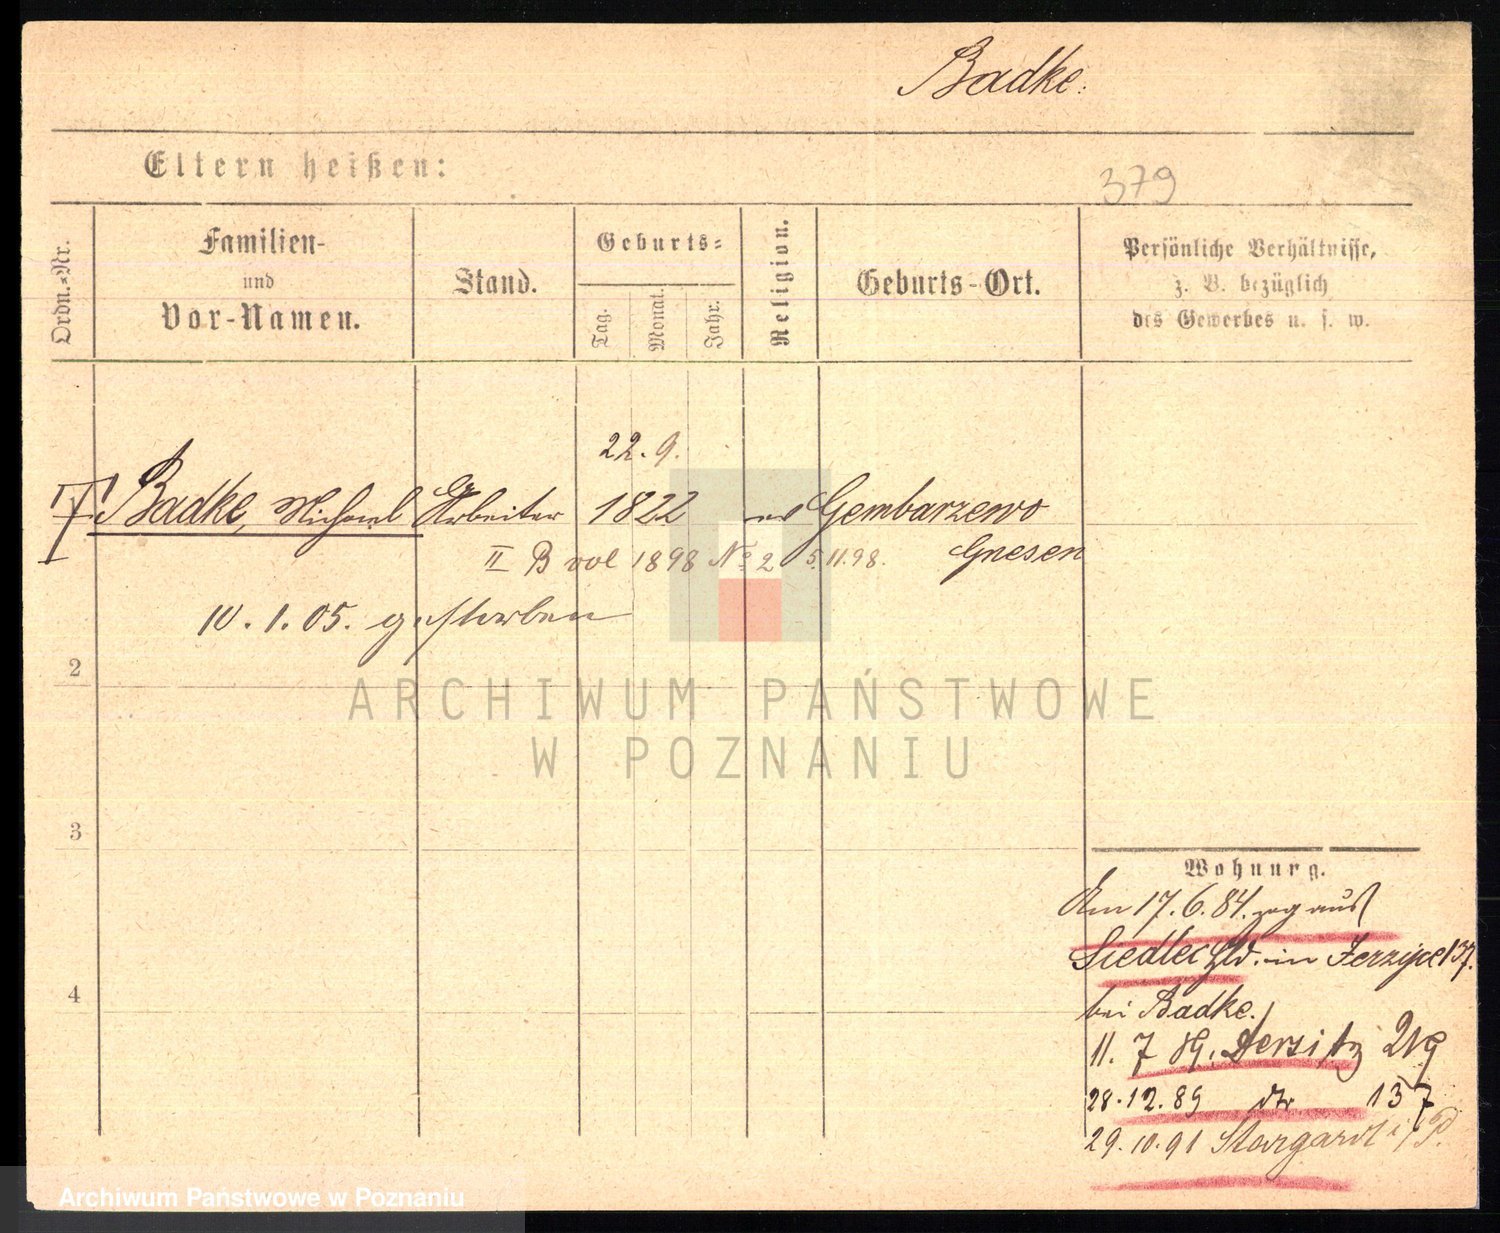 Badke.
Eltern heißen:
379
Ordn.-Nr.
Familien-
und
Vor-Namen.
Stand.
Geburts-
Tag.
Monat.
Jahr.
Religion.
Geburts-Ort.
Persönliche Verhältnisse,
z. B. bezüglich
des Gewerbes u. s. w.
22. 9.
Badke, Michael Arbeiter 1822 ev Gembarzewo
II B vol 1898 No 2 5.11.98. Gnesen
10. 1. 05. gestorben
2
3
4
ARCHIWUM PAŃSTWOWE
W POZNANIU
Wohnung.
Am 17. 6. 84. zog aus
Siedlec in Jerzyce 137.
bei Badke.
11. 7 89. Jersitz 219
28. 12. 89 do 137
29. 10. 91 Stargardt i/P.
Archiwum Państwowe w Poznaniu